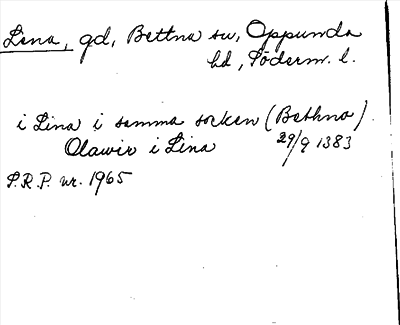 Lina, gd, Bettna sn, Oppunda
hd, Söderm. l.
i Lina i samma socken (Bethna)
Olawir i Lina 29/9 1383
S.R.P. nr. 1965